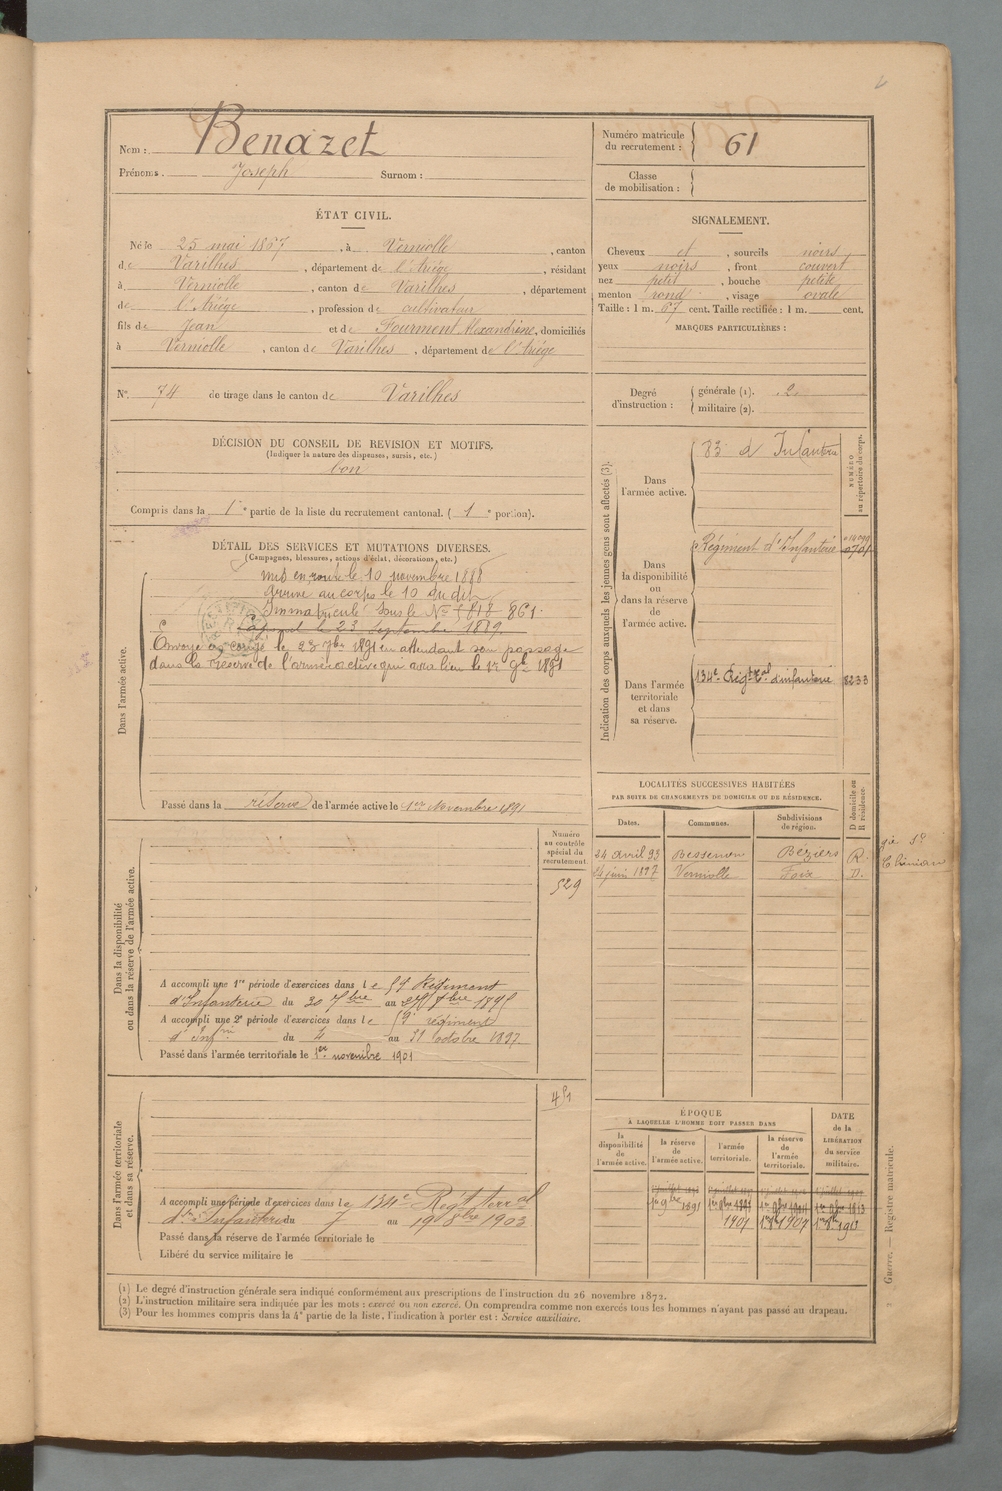 Nom : Benazet
Prénoms. Joseph Surnom :
Numéro matricule du recrutement : 61
Classe de mobilisation :
ÉTAT CIVIL.
Né le 25 mai 1867, à Verniolle, canton
de Varilhes, département de l'Ariége, résidant
à Verniolle, canton de Varilhes, département
de l'Ariége, profession de cultivateur
fils de Jean et de Fourment Alexandrine, domiciliés
à Verniolle, canton de Varilhes, département de l'Ariége
SIGNALEMENT.
Cheveux et, sourcils noirs
yeux noirs, front couvert
nez petit, bouche petite
menton rond, visage ovale
Taille : 1 m. 67 cent. Taille rectifiée : 1 m. cent.
MARQUES PARTICULIÈRES :
N° 74 de tirage dans le canton de Varilhes
Degré d'instruction : générale (1). 2
militaire (2).
DÉCISION DU CONSEIL DE REVISION ET MOTIFS.
(Indiquer la nature des dispenses, sursis, etc.)
bon
Compris dans la 1e partie de la liste du recrutement cantonal. ( 1e portion).
DÉTAIL DES SERVICES ET MUTATIONS DIVERSES.
(Campagnes, blessures, actions d'éclat, décorations, etc.)
Dans l'armée active.
mis en route le 10 novembre 1888
Arrivé au corps le 10 du dit
Immatriculé sous le N° 5818 861.
le 23 septembre 1889.
Envoyé en congé le 23 7bre 1891 en attendant son passage
dans la réserve de l'armée active qui aura lieu le 1er 9bre 1891
Passé dans la réserve de l'armée active le 1er Novembre 1891
Indication des corps auxquels les jeunes gens sont affectés (3).
NUMÉRO au répertoire du corps.
Dans l'armée active.
83e d'Infanterie
Dans la disponibilité ou dans la réserve de l'armée active.
Régiment d'Infanterie
Dans l'armée territoriale et dans sa réserve.
134e Régt tal d'infanterie 8233
LOCALITÉS SUCCESSIVES HABITÉES
PAR SUITE DE CHANGEMENTS DE DOMICILE OU DE RÉSIDENCE.
Dates. Communes. Subdivisions de région. D domicile ou R résidence.
24 avril 93 Bessenon Béziers R.
24 juin 1897 Verniolle Foix D.
gie St
Chinian
Dans la disponibilité ou dans la réserve de l'armée active.
Numéro au contrôle spécial du recrutement.
529
A accompli une 1re période d'exercices dans le 59 Régiment
d'Infanterie du 30 7bre au
A accompli une 2e période d'exercices dans le 59e régiment
d'Infrie du 4 au 31 octobre 1897
Passé dans l'armée territoriale le 1er novembre 1901
Dans l'armée territoriale et dans sa réserve.
451
A accompli une période d'exercices dans le 134e Regt terral
d'Infanterie du 7 au 19 8bre 1903
Passé dans la réserve de l'armée territoriale le
Libéré du service militaire le
ÉPOQUE
À LAQUELLE L'HOMME DOIT PASSER DANS
la disponibilité de l'armée active. la réserve de l'armée active. l'armée territoriale. la réserve de l'armée territoriale. DATE de la LIBÉRATION du service militaire.
1er 9bre 1891
1901 1907 1913
Guerre. — Registre matricule.
(1) Le degré d'instruction générale sera indiqué conformément aux prescriptions de l'instruction du 26 novembre 1872.
(2) L'instruction militaire sera indiquée par les mots : exercé ou non exercé. On comprendra comme non exercés tous les hommes n'ayant pas passé au drapeau.
(3) Pour les hommes compris dans la 4e partie de la liste, l'indication à porter est : Service auxiliaire.